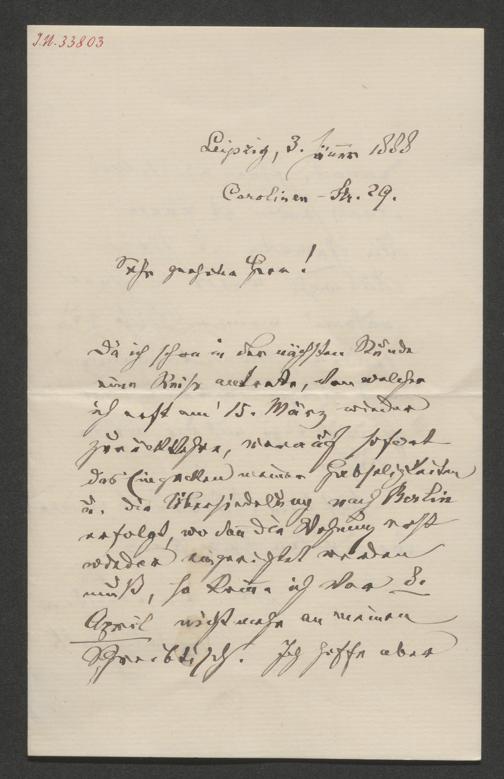 I.N. 33803
Leipzig, 3. Jänner 1888
Carolinen-Str. 29.
Sehr geehrter Herr!
Da ich schon in der nächsten Stunde
eine Reise antrete, von welcher
ich erst am 15. März wieder
zurückkehre, worauf sofort
das Einpacken meiner Habseligkeiten
u. die Übersiedelung nach Berlin
erfolgt, wo dann die Wohnung erst
wieder eingerichtet werden
muß, so komme ich vor 8.
April nicht mehr an meinen
Schreibtisch. Ich hoffe aber